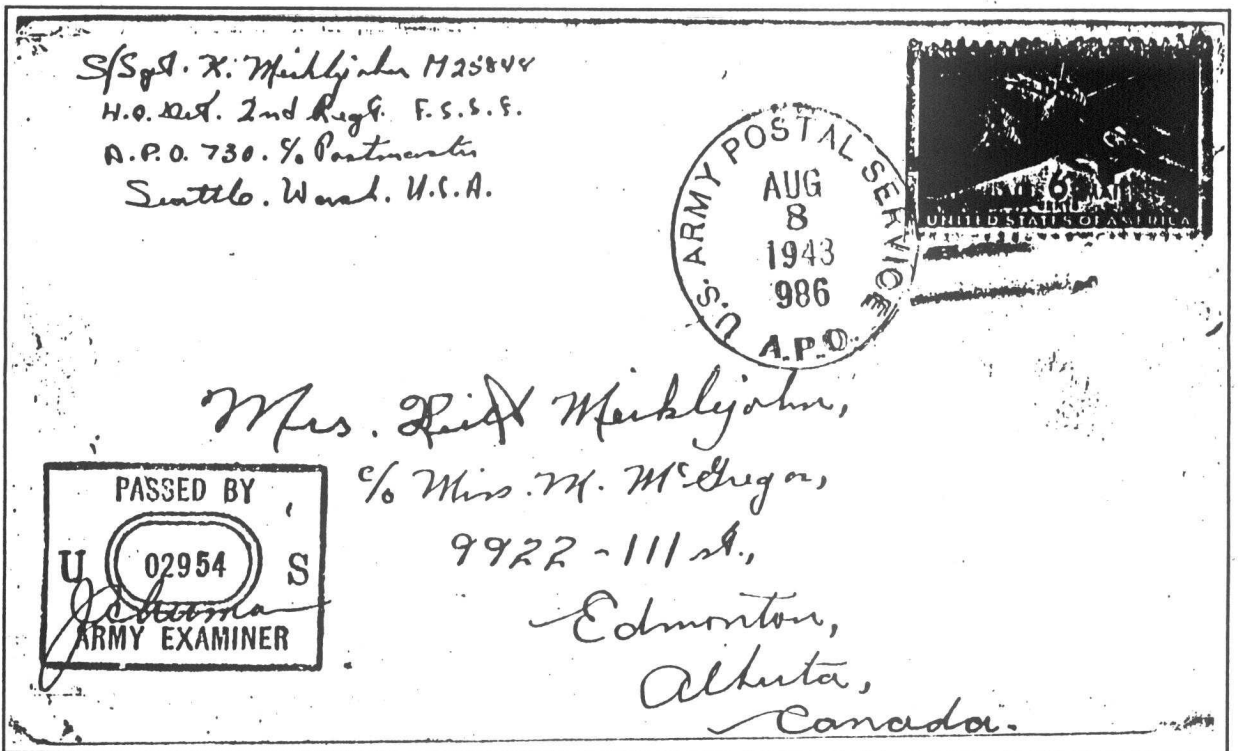 S/Sgt. K. Meiklejohn M25844
H.Q. Det. 2nd Regt. F.S.S.F.
A.P.O. 730. c/o Postmaster
Seattle. Wash. U.S.A.
U.S. ARMY POSTAL SERVICE
AUG
8
1943
986
A.P.O.
6¢
UNITED STATES OF AMERICA
Mrs. Meiklejohn,
c/o Miss. M. McGregor,
9922 - 111 st.,
Edmonton,
Alberta,
Canada.
PASSED BY
U 02954 S
ARMY EXAMINER